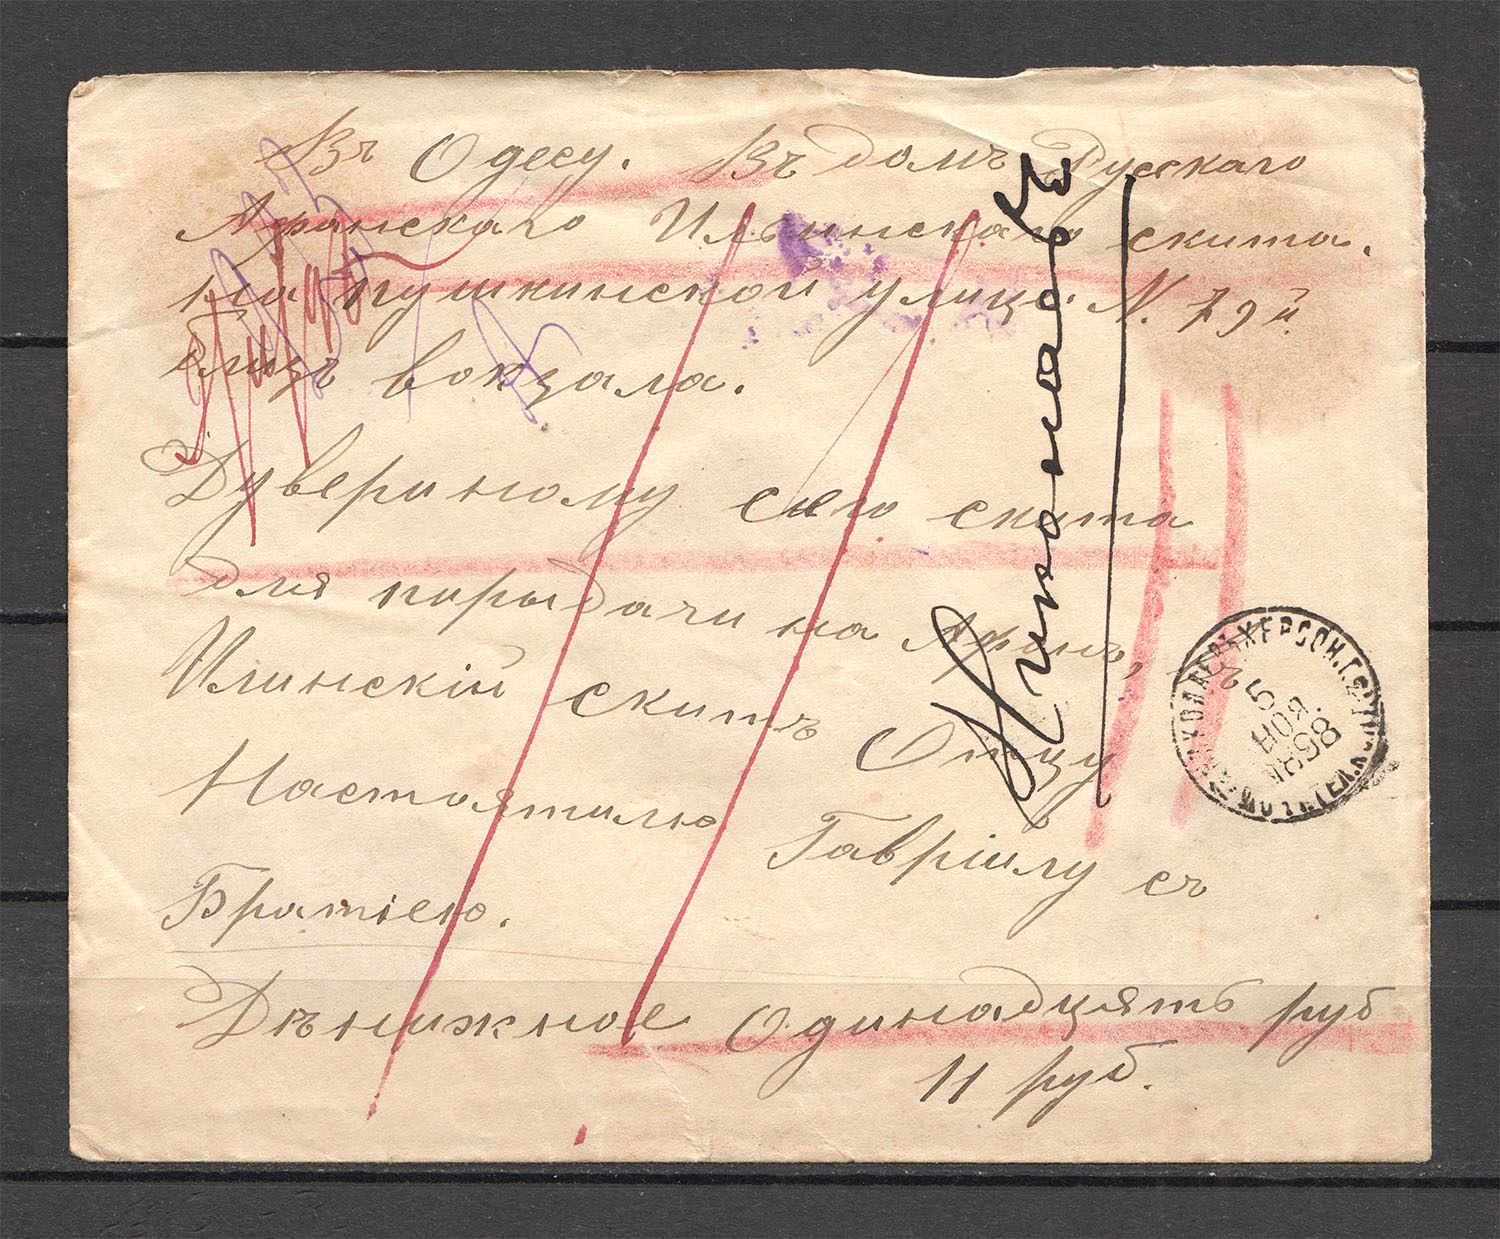 Въ Одесу. Въ домъ Русскаго
Афонскаго Ильинскаго скита.
На пушкинской улицѣ N. 79й
близъ вокзала.
Дувериному сего скита
для пирыдачи на Афонъ, въ
Илинскій скитъ Отцу
Настоятилю Гавріилу съ
Братіею.
Денижное Одинадцять руб
11 руб.
5
НОЯ.
1898